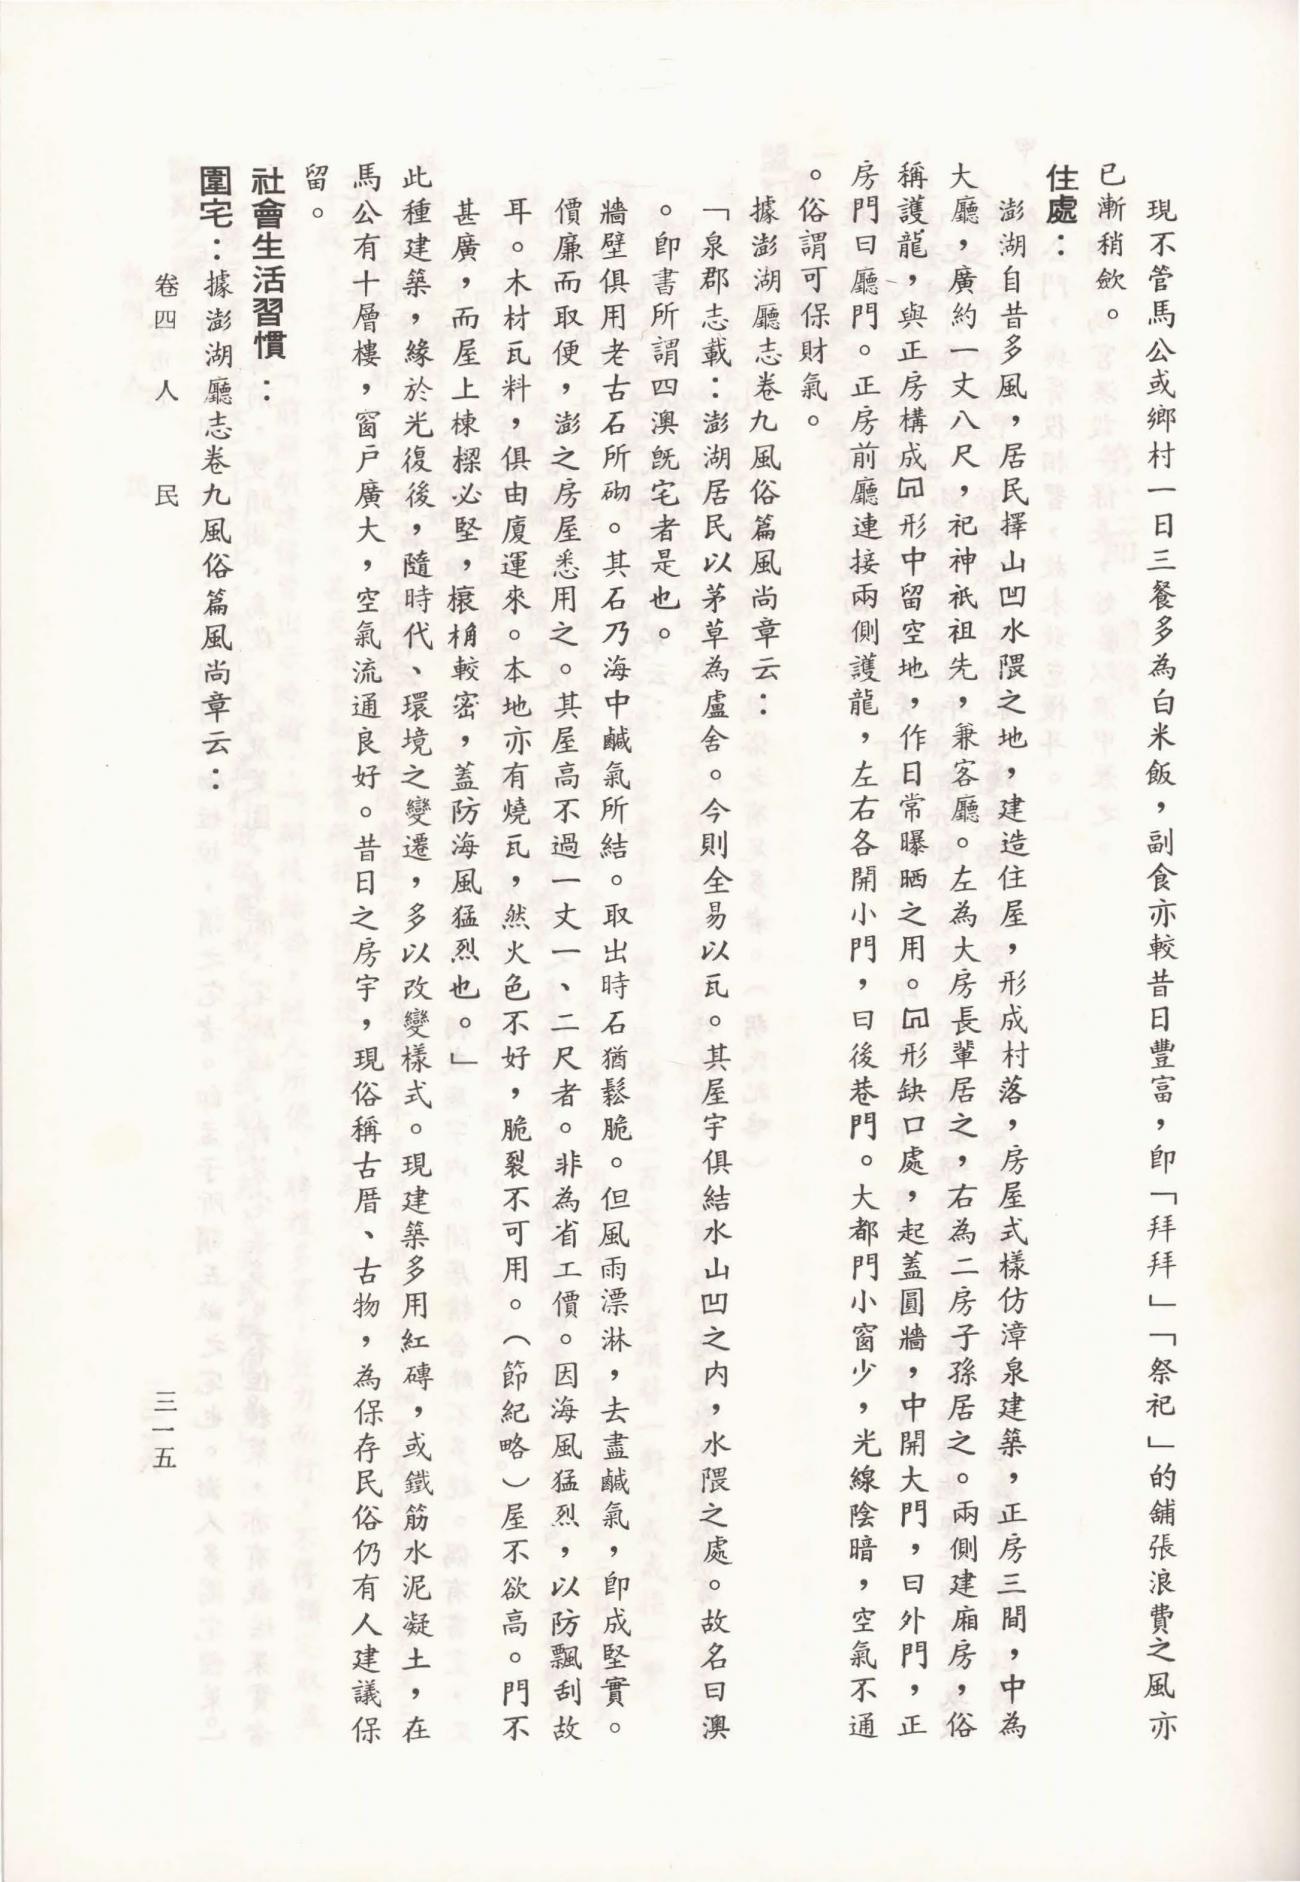 現不管馬公或鄉村一日三餐多為白米飯，副食亦較昔日豐富，卽「拜拜」「祭祀」的舖張浪費之風亦
已漸稍歛。
住處：
澎湖自昔多風，居民擇山凹水隈之地，建造住屋，形成村落，房屋式樣仿漳泉建築，正房三間，中為
大廳，廣約一丈八尺，祀神祇祖先，兼客廳。左為大房長輩居之，右為二房子孫居之。兩側建廂房，俗
稱護龍，與正房構成形中留空地，作日常曝晒之用。形缺口處，起蓋圓牆，中開大門，曰外門，正
房門曰廳門。正房前廳連接兩側護龍，左右各開小門，曰後巷門。大都門小窗少，光線陰暗，空氣不通
。俗謂可保財氣。
據澎湖廳志卷九風俗篇風尚章云：
「泉郡志載：澎湖居民以茅草為盧舍。今則全易以瓦。其屋宇俱結水山凹之內，水隈之處。故名曰澳
。卽書所謂四澳旣宅者是也。
牆壁俱用老古石所砌。其石乃海中鹹氣所結。取出時石猶鬆脆。但風雨漂淋，去盡鹹氣，卽成堅實。
價廉而取便，澎之房屋悉用之。其屋高不過一丈一、二尺者。非為省工價。因海風猛烈，以防飄刮故
耳。木材瓦料，俱由廈運來。本地亦有燒瓦，然火色不好，脆裂不可用。（節紀略）屋不欲高。門不
甚廣，而屋上棟樑必堅，榱桷較密，蓋防海風猛烈也。」
此種建築，緣於光復後，隨時代、環境之變遷，多以改變樣式。現建築多用紅磚，或鐵筋水泥凝土，在
馬公有十層樓，窗戶廣大，空氣流通良好。昔日之房宇，現俗稱古厝、古物，為保存民俗仍有人建議保
留。
社會生活習慣：
圍宅：據澎湖廳志卷九風俗篇風尚章云：
卷四 人 民
三一五